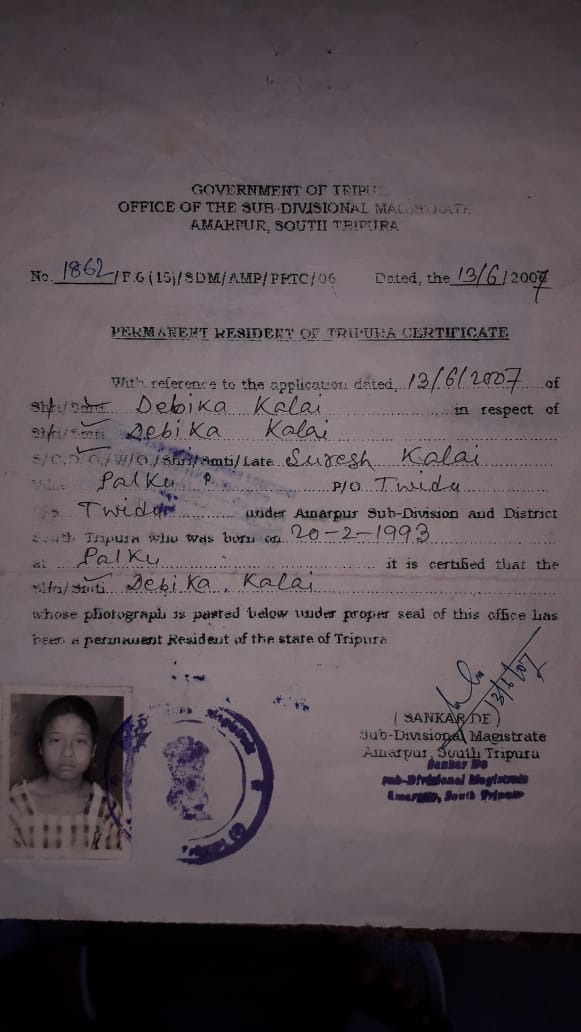 GOVERNMENT OF TRIPU
OFFICE OF THE SUB-DIVISIONAL MAGISTRATE
AMARPUR, SOUTH TRIPURA
No. 1862/F.6(15)/SDM/AMP/PRTC/06 Dated, the 13/6/2007
PERMANENT RESIDENT OF TRIPURA CERTIFICATE
With reference to the application dated, 13/6/2007 of
Shri/Smti Debika Kalai in respect of
Shri/Smti Debika Kalai
S/O, D/O, W/O, Shri/Smti/Late Suresh Kalai
Palku P/O Twidu
Twidu under Amarpur Sub-Division and District
South Tripura who was born on 20-2-1993
at Palku it is certified that the
Shri/Smti Debika Kalai
whose photograph is pasted below under proper seal of this office has
been a permanent Resident of the state of Tripura
13/6/07
(SANKAR DE)
Sub-Divisional Magistrate
Amarpur, South Tripura
Sankar De
Sub-Divisional Magistrate
Amarpur, South Tripura